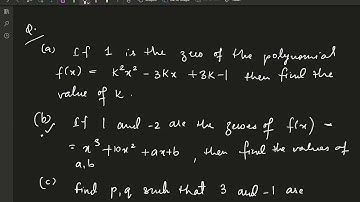 Q.
(a) If 1 is the zero of the polynomial
f(x) = k²x² - 3kx + 3k-1 then find the
value of k.
(b) If 1 and -2 are the zeroes of f(x) =
= x³ + 10x² + ax + b, then find the values of
a, b
(c) find p, q such that 3 and -1 are